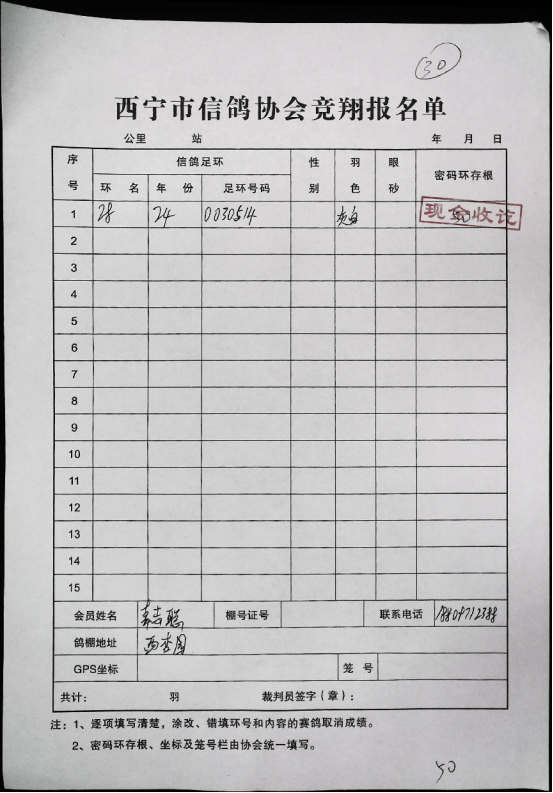 30
西宁市信鸽协会竞翔报名单
公里 站 年 月 日
序号 信鸽足环 性别 羽色 眼砂 密码环存根
环名 年份 足环号码
1 28 24 0030514 50 现金收讫
2
3
4
5
6
7
8
9
10
11
12
13
14
15
会员姓名 棚号证号 联系电话
鸽棚地址 西杏园
GPS坐标 笼号
共计： 羽 裁判员签字（章）：
注：1、逐项填写清楚，涂改、错填环号和内容的赛鸽取消成绩。
2、密码环存根、坐标及笼号栏由协会统一填写。
50